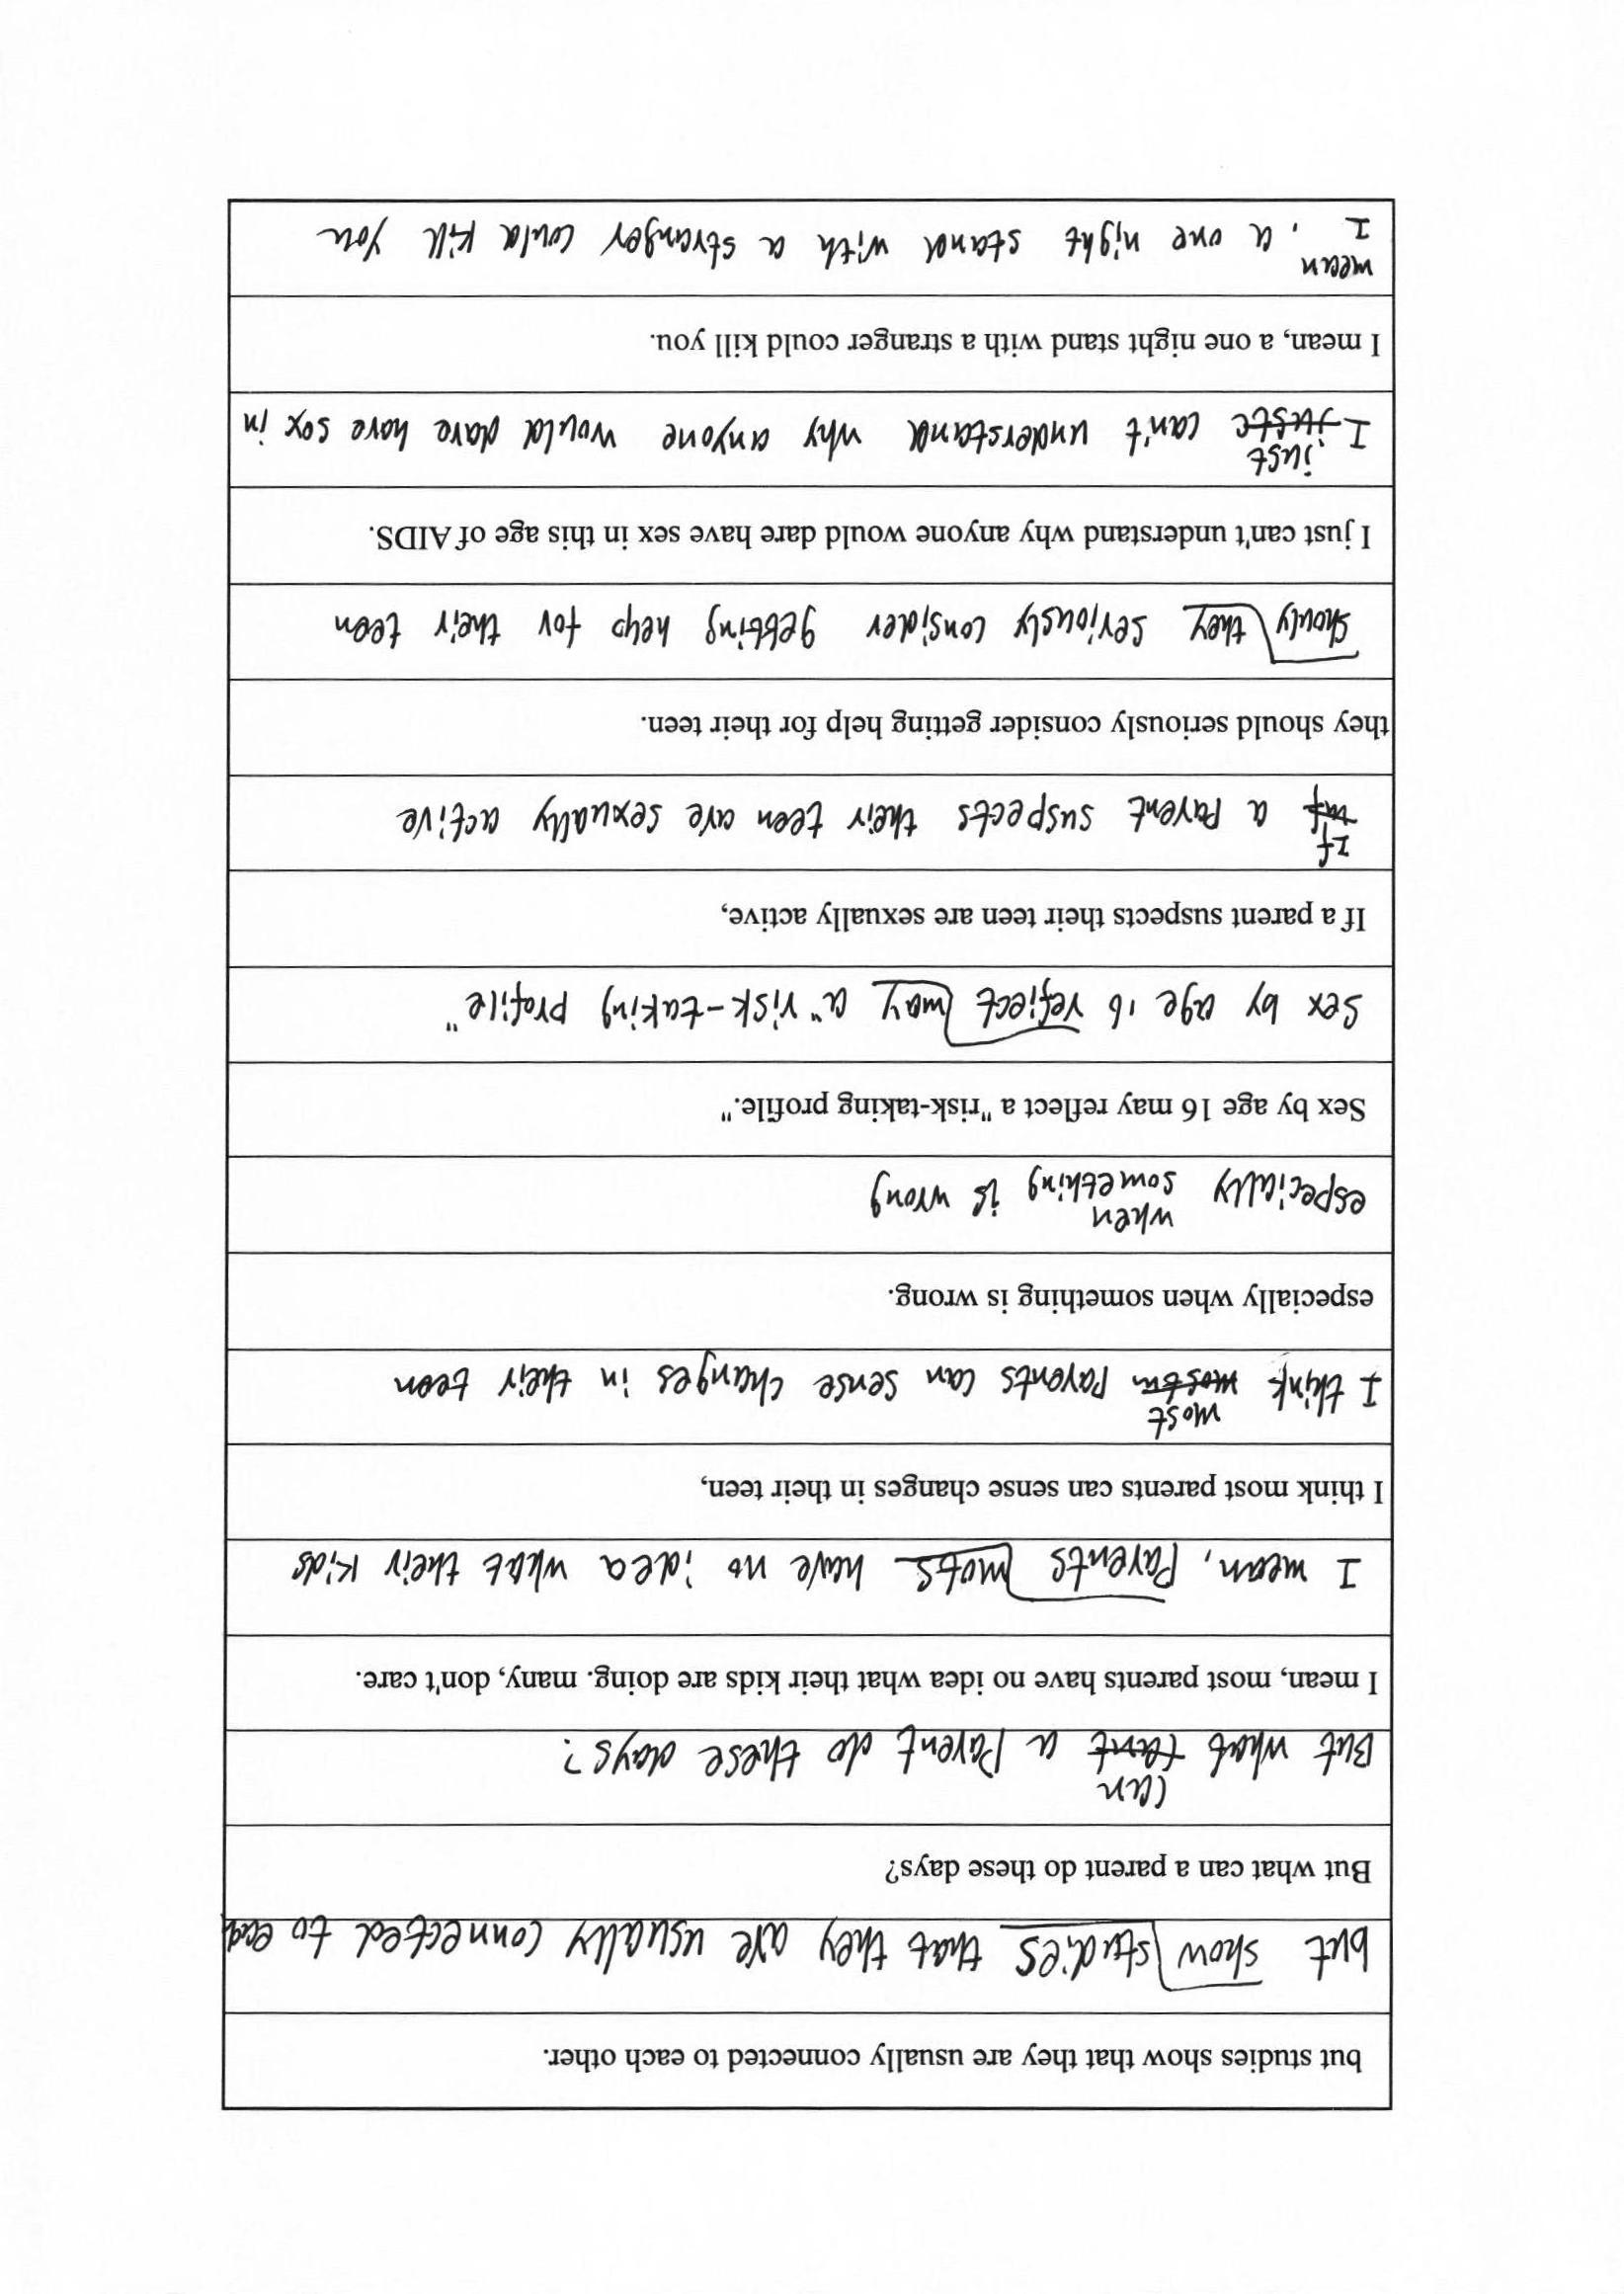 but studies show that they are usually connected to each other.
but show studies that they are usually connected to eac
But what can a parent do these days?
But what can a Parent do these days?
I mean, most parents have no idea what their kids are doing. many, don't care.
I mean, Parents mots have no idea what their kids
I think most parents can sense changes in their teen,
I think most Parents can sense changes in their teen
especially when something is wrong.
especially when something is wrong
Sex by age 16 may reflect a "risk-taking profile."
Sex by age 16 reflect may a "risk-taking profile"
If a parent suspects their teen are sexually active,
If a Parent suspects their teen are sexually active
they should seriously consider getting help for their teen.
shouly they seriously consider getting help for their teen
I just can't understand why anyone would dare have sex in this age of AIDS.
I just can't understand why anyone would dave have sex in
I mean, a one night stand with a stranger could kill you.
I mean, a one night stand with a stranger could kill you